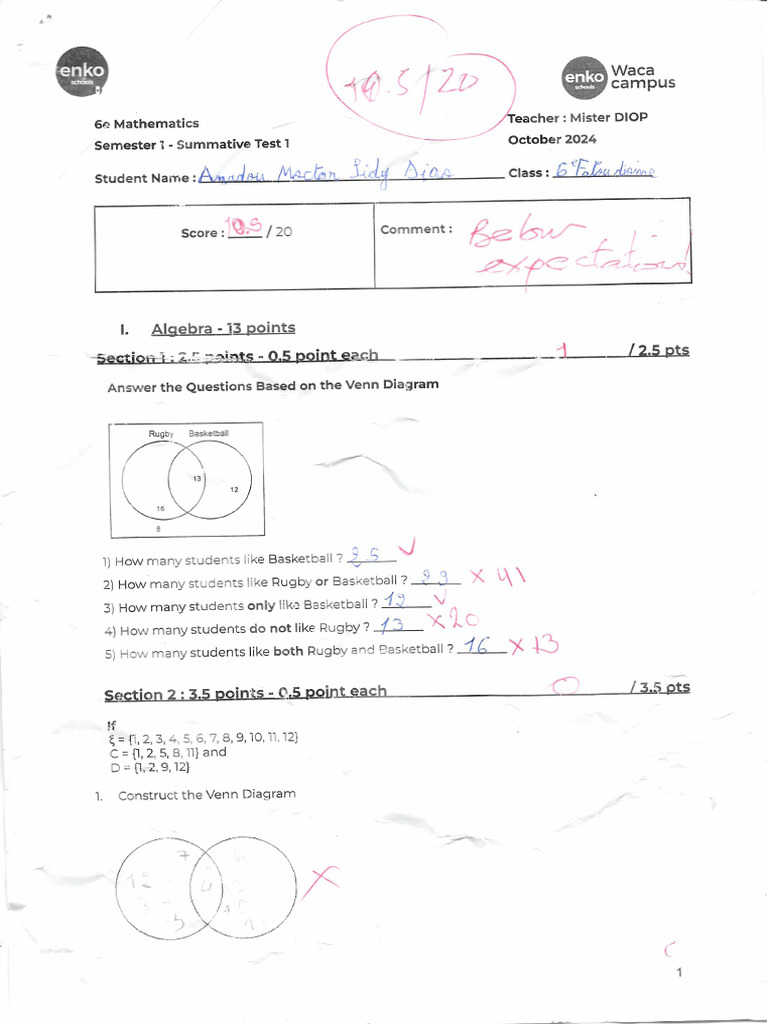 10.5/20
enko
schools
enko
schools
Waca
campus
6e Mathematics
Teacher : Mister DIOP
Semester 1 - Summative Test 1
October 2024
Student Name : Amadou Moctar Sidy Diao
Class : 6e
Score : 10.5 / 20
Comment : Below
expectations
I. Algebra - 13 points
Section 1 : 2.5 points - 0.5 point each 1 / 2.5 pts
Answer the Questions Based on the Venn Diagram
Rugby Basketball
13
12
16
8
1) How many students like Basketball ? 25 ✓
2) How many students like Rugby or Basketball ? 29 × 41
3) How many students only like Basketball ? 12 ✓
4) How many students do not like Rugby ? 13 × 20
5) How many students like both Rugby and Basketball ? 16 × 13
Section 2 : 3.5 points - 0.5 point each 0 / 3.5 pts
If
ξ = {1, 2, 3, 4, 5, 6, 7, 8, 9, 10, 11, 12}
C = {1, 2, 5, 8, 11} and
D = {1, 2, 9, 12}
1. Construct the Venn Diagram
7
12
4
×
3
5
1
1